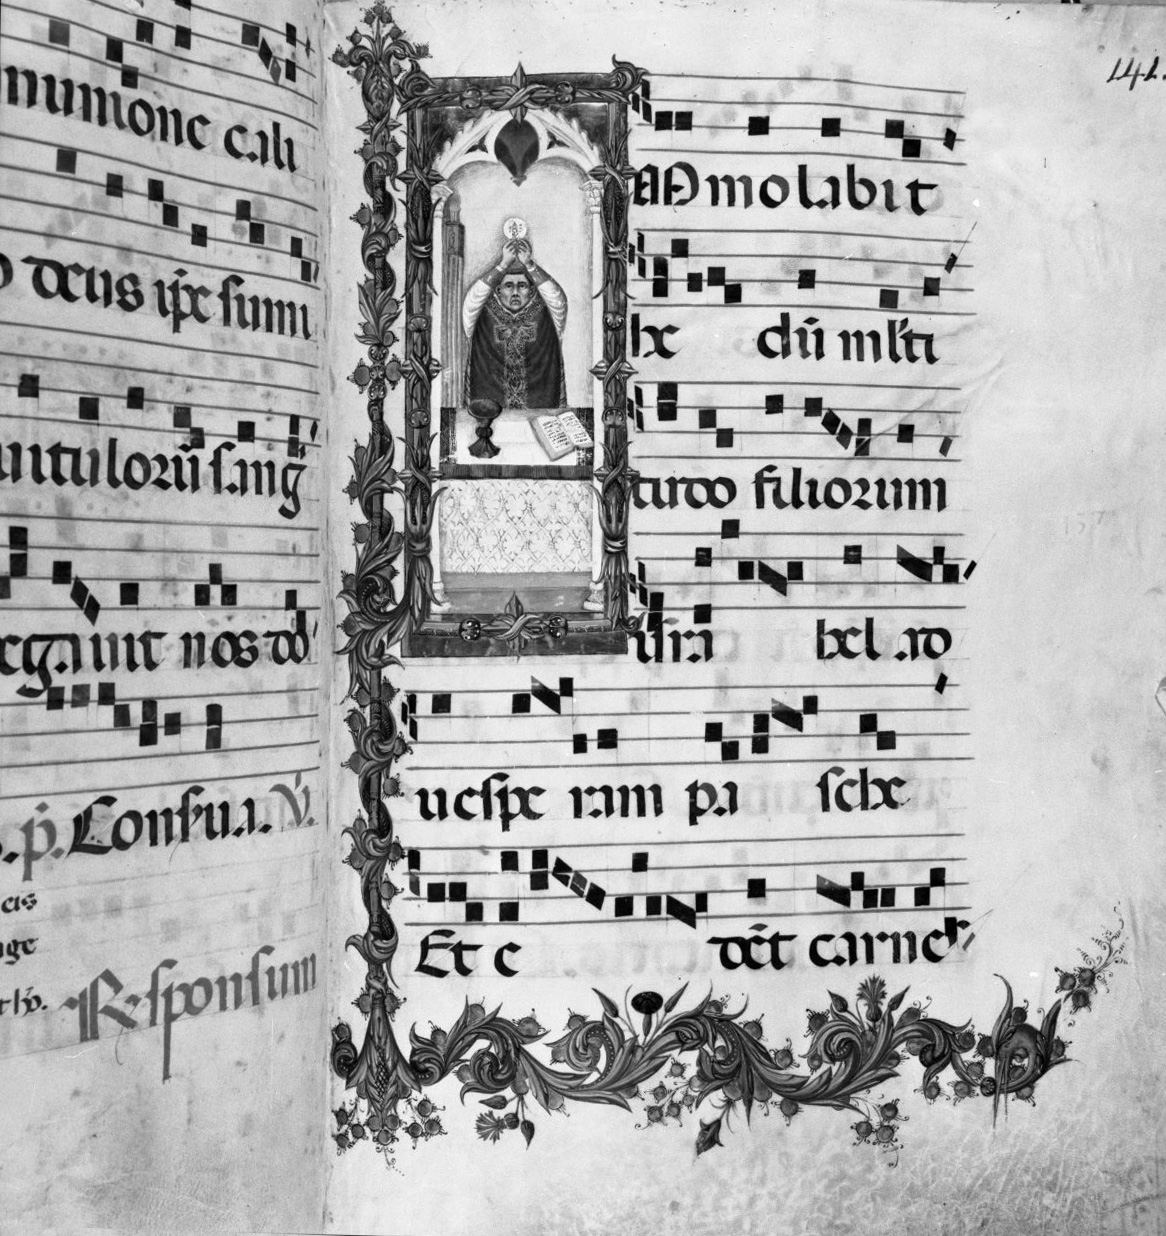 munione cali
o deus ip̄e sum
uitulorū sang
egauit nos dn̄
p̄s. Conserua. V̇
cis
nge
Responsum
141.
Mmolabit
he dū mlti
tudo filiorum
isra hel ad
uespe ram pa sche
Et e dēt carnes